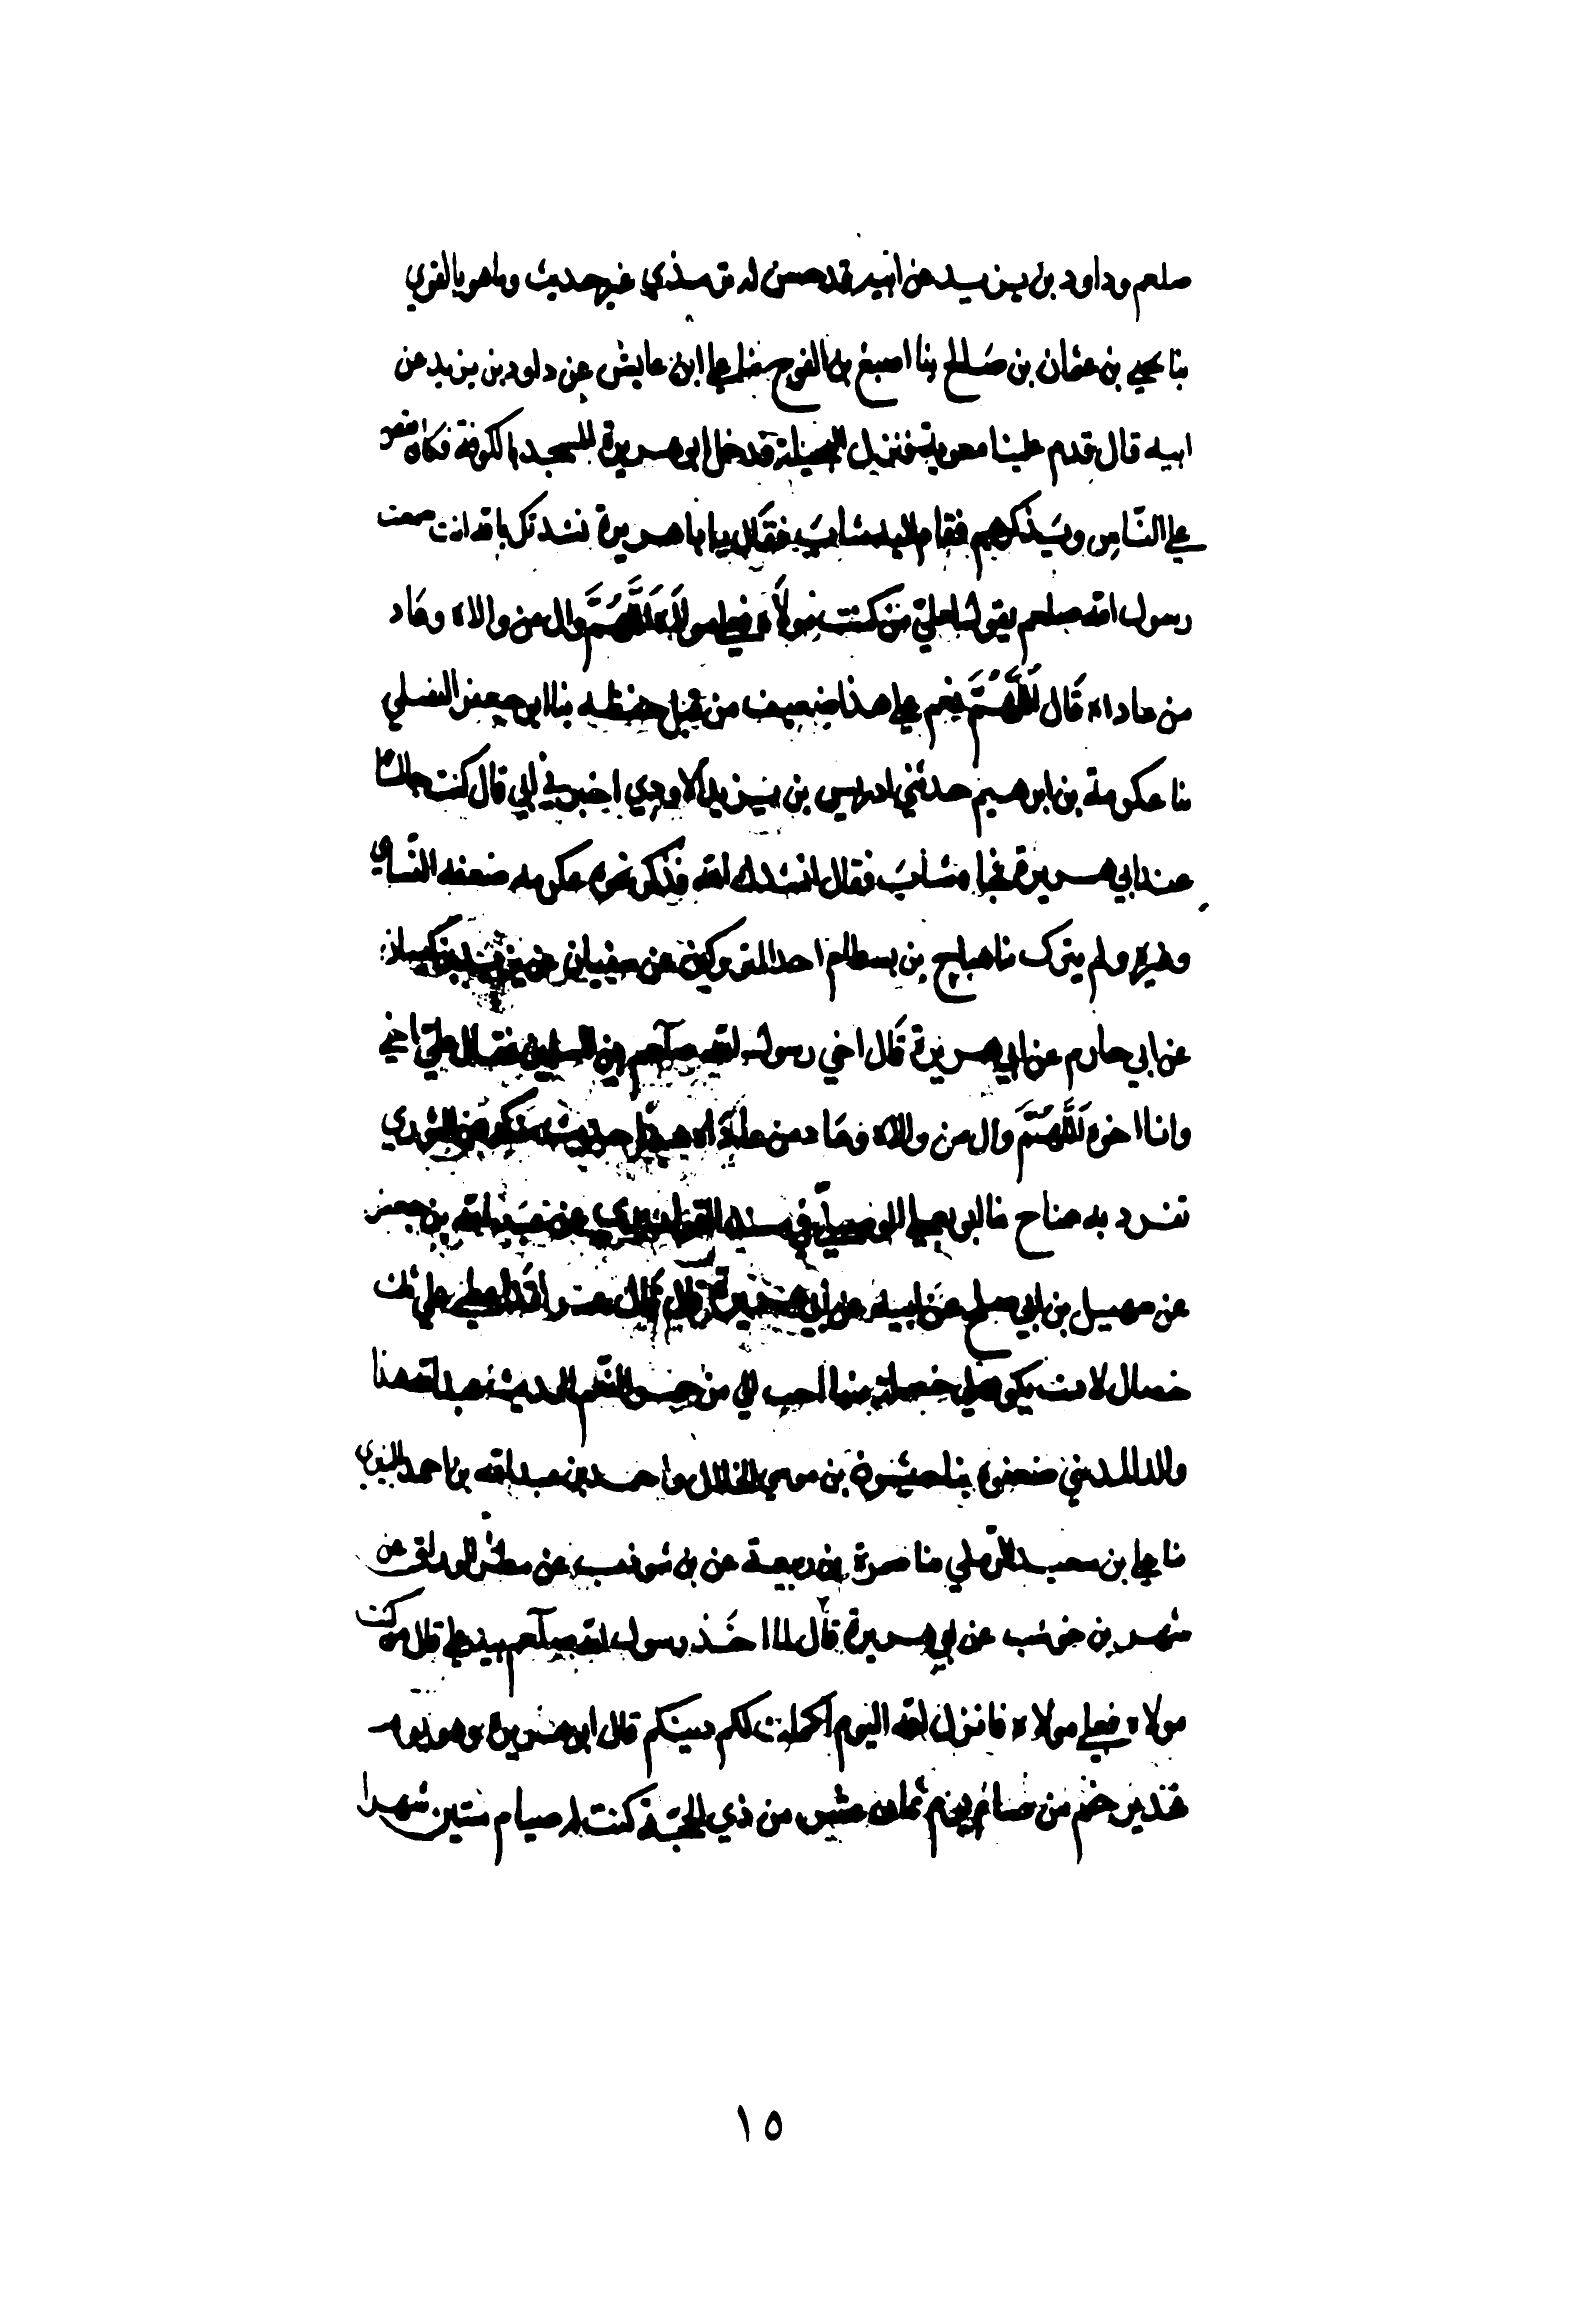 صلعم وداود بن يزيد عن ابيه قد حسن له ترمذي غير حديث وما هو بالقوي
بنا يحيى بن عثمان بن صالح بنا اصبغ بن الفرج بنا علي ابن عابس عن داود بن يزيد عن
ابيه قال قدم علينا معوية فنزل النخيلة فدخل ابو هريرة المسجد بالكوفة فكان يقص
على النّاس ويذكرهم فقام اليه شاب فقال يا با هريرة نشدتك بالله انت سمعت
رسول الله صلعم يقول لعلي من كنت مولاه فعلي مولاه اللّهُمَّ وال من والاه وعاد
من عاداه قال اللّهُمَّ نعم علي هذا ضعيف من قبل حفظه بنا ابو جعفر النفيلي
بنا عكرمة بن ابرهيم حدثني ادريس بن يزيد الاودي اخبرني ابي قال كنت جالسا
عند ابي هريرة فجا شاب فقال انشدك الله فذكر نحوه عكرمه ضعفه النّساي
وغيره ولم يترك بنا هياج بن بسطام احد المتروكين عن سفيان عن يزيد بن كيسان
عن ابي حازم عن ابي هريرة قال اخي رسول الله صلعم بين المسلمين فقال علي اخي
وانا اخوه اللّهُمَّ وال من والاه وعاد من عاداه هذا حديث منكر عن الثوري
تفرد به هياج نا ابو يعلى الموصلي في سنده القواريري عن عبد الله بن جعفر
عن سهيل بن ابي صلح عن ابيه عن ابي هريرة قال قال عمر لقد اعطي علي ثلث
خصال لان تكون لي خصلة منها احب الي من حمر النّعم الحديث عبد الله هذا
والد المديني ضعفوه بنا حبشون بن موسى الخلال واحمد بن عبد الله بن احمد النيري
نا علي بن سعيد الرّملي نا ضمرة بن ربيعة عن بن شوذب عن مطر الوراق عن
شهر بن حوشب عن ابي هريرة قال لما اخذ رسول الله صلعم بيد علي قال من كنت
مولاه فعلي مولاه فانزل الله اليوم اكملت لكم دينكم قال ابو هريرة وهو يوم
غدير خم من صام يوم ثمان عشر من ذي الحجّة كتبت له صيام ستين شهرا
١٥